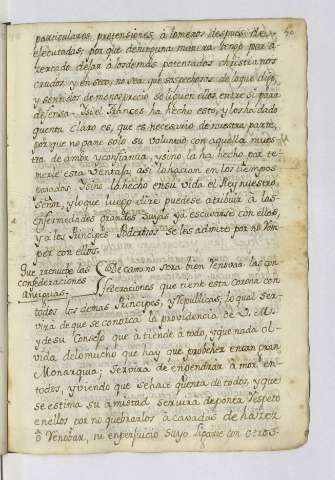 particulares, pretensiones, à lo menos despues de
executadas, por que de ninguna manera tengo por a
certado dejar à los demas potentados christianos
crudos y enseco, no sea que sospechosos de lo que dijo,
y sentidos de menosprecio se liguen ellos entre si para
defensa. Y si el Frances ha hecho esto, y los ha dado
quenta claro es, que es necesario de nuestra parte,
porque no gane solo su voluntad con aquella mues
tra de amor y confianza, y sino la ha hecho por te
nerle esta ventaja, asi lo haran en los tiempos
pasados. Y sino la hecho en su vida el Rey nuestro
señor, y lo que luego dire puedese atribuir à las
enfermedades grandes suyas ya escusarse con ellas,
y à los Principes Poderosos se les admite por no rom
per con ellos.
Que renueve las
confederaciones
antiguas.
Y de camino sera bien renovar las con
federaciones que tiene esta Corona con
todos los demas Principes, y Republicas, lo qual ser
vira de que se conozca la providencia de V. M.
y de su Consejo que à tiende à todo, y que nada ol
vida de lo mucho que hay que proveher en tan gran
Monarquia; servira de engendrar à mor en
todos, y viendo que se hace quenta de todos, y que
se estima su amistad servira de poner respeto
en ellos por no quebrarlos à causa de
ò renovar, ni en perjuicio suyo ligarse con otros.